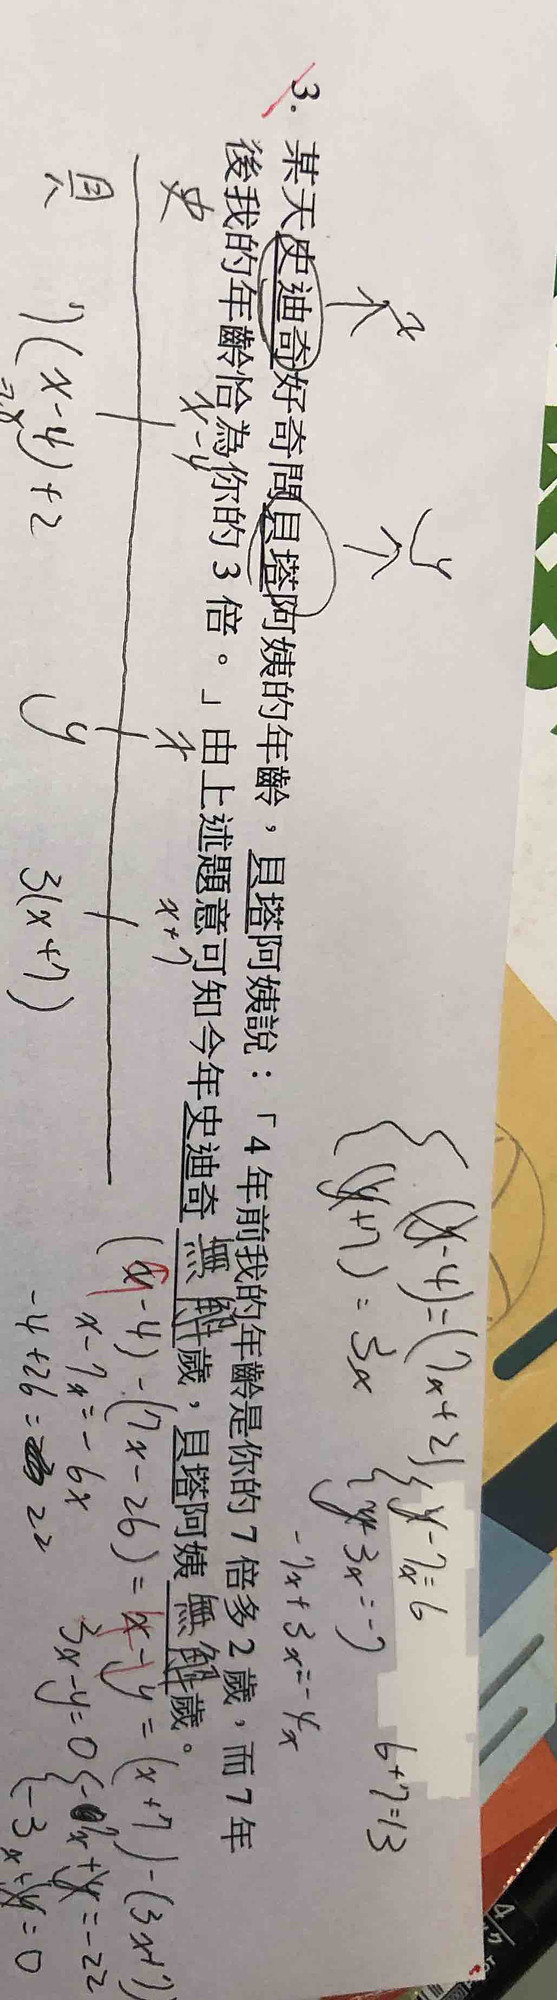 3. 某天史迪奇好奇問貝塔阿姨的年齡，貝塔阿姨說：「4年前我的年齡是你的7倍多2歲，而7年
後我的年齡恰為你的3倍。」由上述題意可知今年史迪奇無解歲，貝塔阿姨無解歲。
x
y
史
x-4
x
x+7
貝
7(x-4)+2
y
3(x+7)
(y-4)=(7x+2)
(y+7)=3x
y-7x=6
y+3x=-7
6+7=13
-7x+3x=-4x
(x-4)-(7x-26)=x-y=(x+7)-(3x+7)
x-7x=-6x
-4+26=22
3x-y=0
-7x+y=-22
-3x+y=0